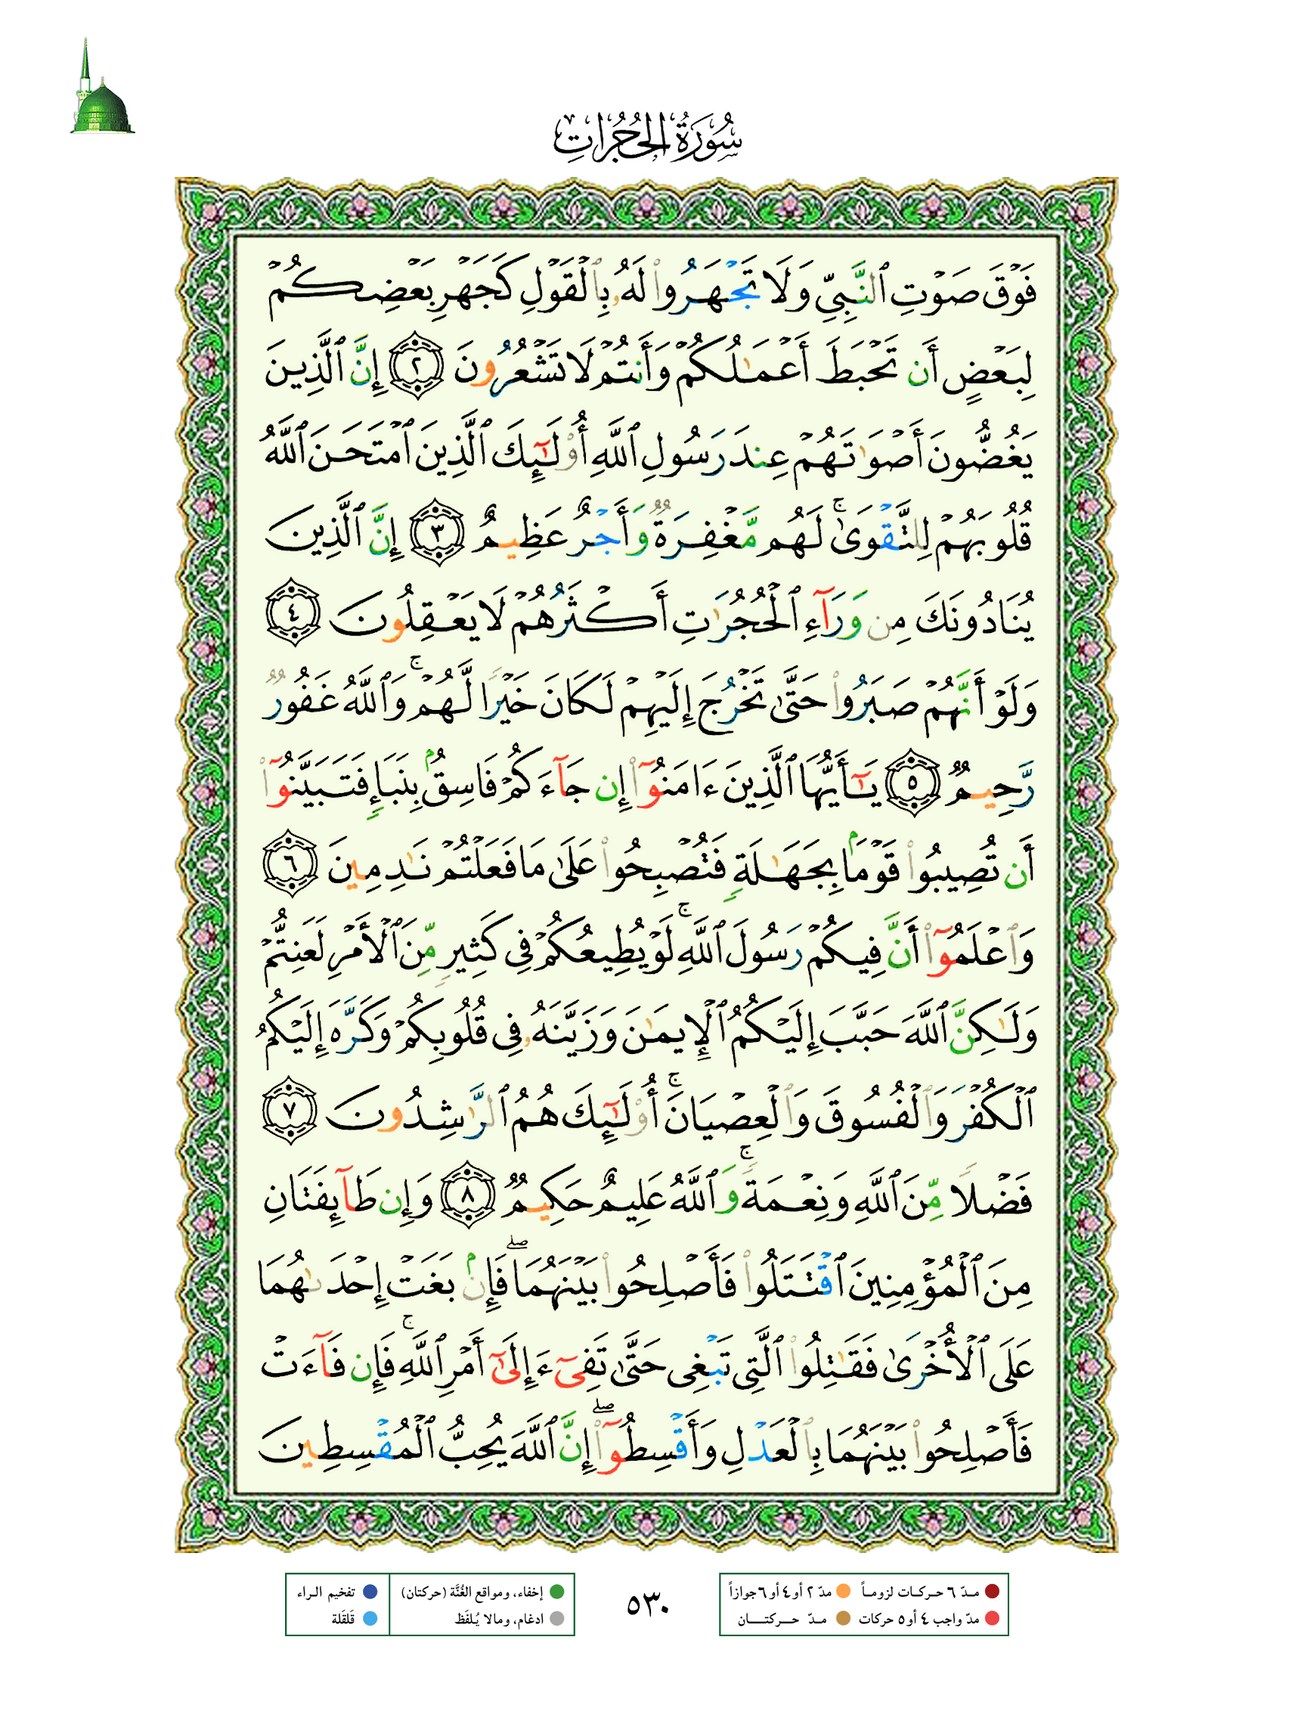 سُورَةُ الحُجُرَاتِ
فَوْقَ صَوْتِ ٱلنَّبِيِّ وَلَا تَجْهَرُوا۟ لَهُۥ بِٱلْقَوْلِ كَجَهْرِ بَعْضِكُمْ
لِبَعْضٍ أَن تَحْبَطَ أَعْمَـٰلُكُمْ وَأَنتُمْ لَا تَشْعُرُونَ ٢ إِنَّ ٱلَّذِينَ
يَغُضُّونَ أَصْوَٰتَهُمْ عِندَ رَسُولِ ٱللَّهِ أُو۟لَـٰٓئِكَ ٱلَّذِينَ ٱمْتَحَنَ ٱللَّهُ
قُلُوبَهُمْ لِلتَّقْوَىٰ ۚ لَهُم مَّغْفِرَةٌ وَأَجْرٌ عَظِيمٌ ٣ إِنَّ ٱلَّذِينَ
يُنَادُونَكَ مِن وَرَآءِ ٱلْحُجُرَٰتِ أَكْثَرُهُمْ لَا يَعْقِلُونَ ٤
وَلَوْ أَنَّهُمْ صَبَرُوا۟ حَتَّىٰ تَخْرُجَ إِلَيْهِمْ لَكَانَ خَيْرًا لَّهُمْ ۚ وَٱللَّهُ غَفُورٌ
رَّحِيمٌ ٥ يَـٰٓأَيُّهَا ٱلَّذِينَ ءَامَنُوٓا۟ إِن جَآءَكُمْ فَاسِقٌۢ بِنَبَإٍ فَتَبَيَّنُوٓا۟
أَن تُصِيبُوا۟ قَوْمًۢا بِجَهَـٰلَةٍ فَتُصْبِحُوا۟ عَلَىٰ مَا فَعَلْتُمْ نَـٰدِمِينَ ٦
وَٱعْلَمُوٓا۟ أَنَّ فِيكُمْ رَسُولَ ٱللَّهِ ۚ لَوْ يُطِيعُكُمْ فِى كَثِيرٍ مِّنَ ٱلْأَمْرِ لَعَنِتُّمْ
وَلَـٰكِنَّ ٱللَّهَ حَبَّبَ إِلَيْكُمُ ٱلْإِيمَـٰنَ وَزَيَّنَهُۥ فِى قُلُوبِكُمْ وَكَرَّهَ إِلَيْكُمُ
ٱلْكُفْرَ وَٱلْفُسُوقَ وَٱلْعِصْيَانَ ۚ أُو۟لَـٰٓئِكَ هُمُ ٱلرَّٰشِدُونَ ٧
فَضْلًا مِّنَ ٱللَّهِ وَنِعْمَةً ۚ وَٱللَّهُ عَلِيمٌ حَكِيمٌ ٨ وَإِن طَآئِفَتَانِ
مِنَ ٱلْمُؤْمِنِينَ ٱقْتَتَلُوا۟ فَأَصْلِحُوا۟ بَيْنَهُمَا ۖ فَإِنۢ بَغَتْ إِحْدَىٰهُمَا
عَلَى ٱلْأُخْرَىٰ فَقَـٰتِلُوا۟ ٱلَّتِى تَبْغِى حَتَّىٰ تَفِىٓءَ إِلَىٰٓ أَمْرِ ٱللَّهِ ۚ فَإِن فَآءَتْ
فَأَصْلِحُوا۟ بَيْنَهُمَا بِٱلْعَدْلِ وَأَقْسِطُوٓا۟ ۖ إِنَّ ٱللَّهَ يُحِبُّ ٱلْمُقْسِطِينَ
مدّ ٦ حركات لزوماً مدّ ٢ أو ٤ أو ٦ جوازاً
مدّ واجب ٤ أو ٥ حركات مدّ حركتان
٥٣٠
إخفاء، ومواقع الغُنَّة (حركتان) تفخيم الراء
ادغام، ومالا يُلفَظ قَلقَلة